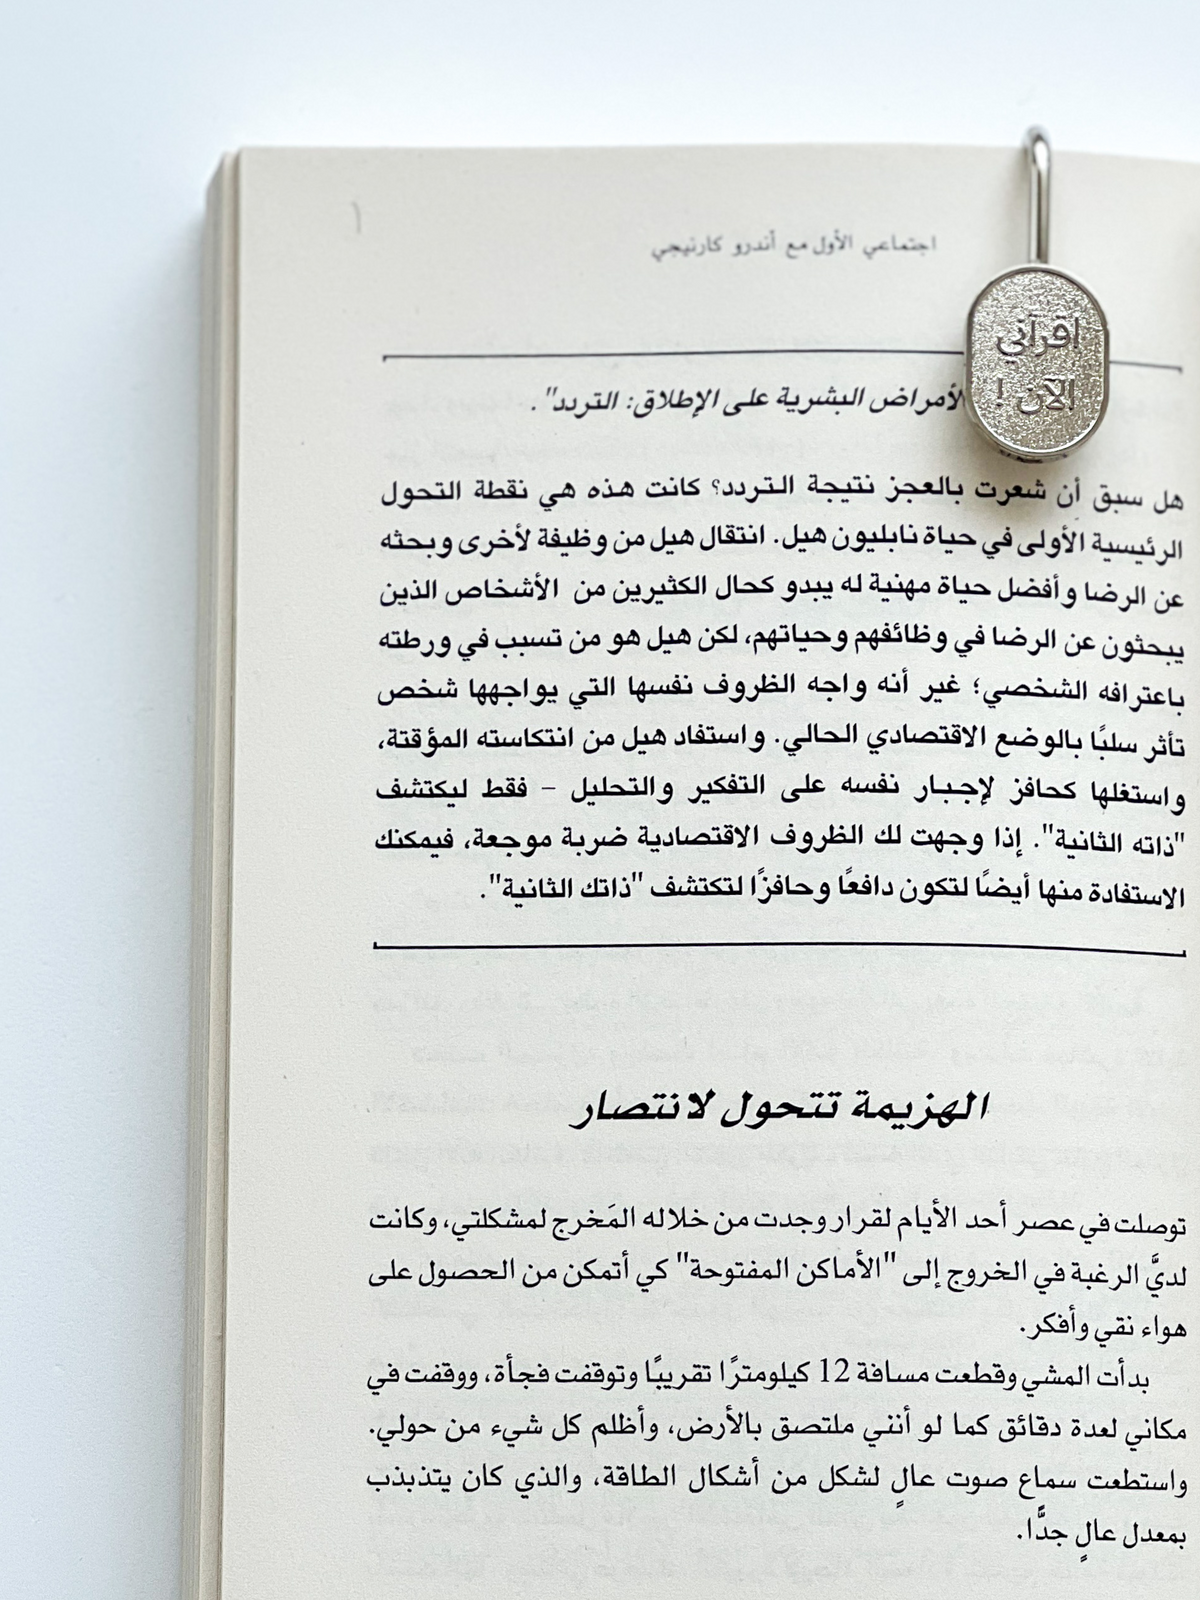 اجتماعي الأول مع أندرو كارنيجي
اقرأني
الآن !
الأمراض البشرية على الإطلاق: التردد".
هل سبق أن شعرت بالعجز نتيجة التردد؟ كانت هذه هي نقطة التحول
الرئيسية الأولى في حياة نابليون هيل. انتقال هيل من وظيفة لأخرى وبحثه
عن الرضا وأفضل حياة مهنية له يبدو كحال الكثيرين من الأشخاص الذين
يبحثون عن الرضا في وظائفهم وحياتهم، لكن هيل هو من تسبب في ورطته
باعترافه الشخصي؛ غير أنه واجه الظروف نفسها التي يواجهها شخص
تأثر سلبًا بالوضع الاقتصادي الحالي. واستفاد هيل من انتكاسته المؤقتة،
واستغلها كحافز لإجبار نفسه على التفكير والتحليل – فقط ليكتشف
"ذاته الثانية". إذا وجهت لك الظروف الاقتصادية ضربة موجعة، فيمكنك
الاستفادة منها أيضًا لتكون دافعًا وحافزًا لتكتشف "ذاتك الثانية".
الهزيمة تتحول لانتصار
توصلت في عصر أحد الأيام لقرار وجدت من خلاله المَخرج لمشكلتي، وكانت
لديَّ الرغبة في الخروج إلى "الأماكن المفتوحة" كي أتمكن من الحصول على
هواء نقي وأفكر.
بدأت المشي وقطعت مسافة 12 كيلومترًا تقريبًا وتوقفت فجأة، ووقفت في
مكاني لعدة دقائق كما لو أنني ملتصق بالأرض، وأظلم كل شيء من حولي.
واستطعت سماع صوت عالٍ لشكل من أشكال الطاقة، والذي كان يتذبذب
بمعدل عالٍ جدًّا.